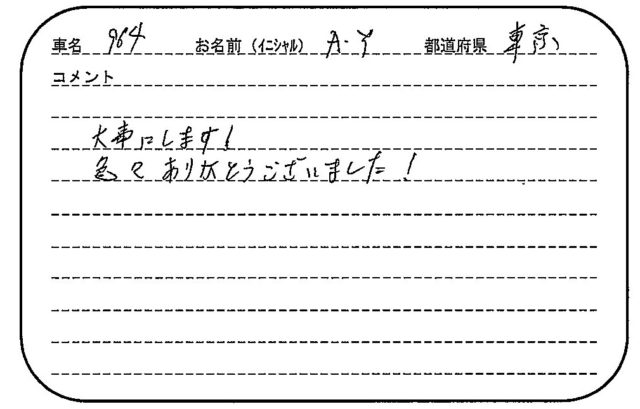 車名 964 お名前（ｲﾆｼｬﾙ） A・Y 都道府県 東京
コメント
大事にします！
急々ありがとうございました！